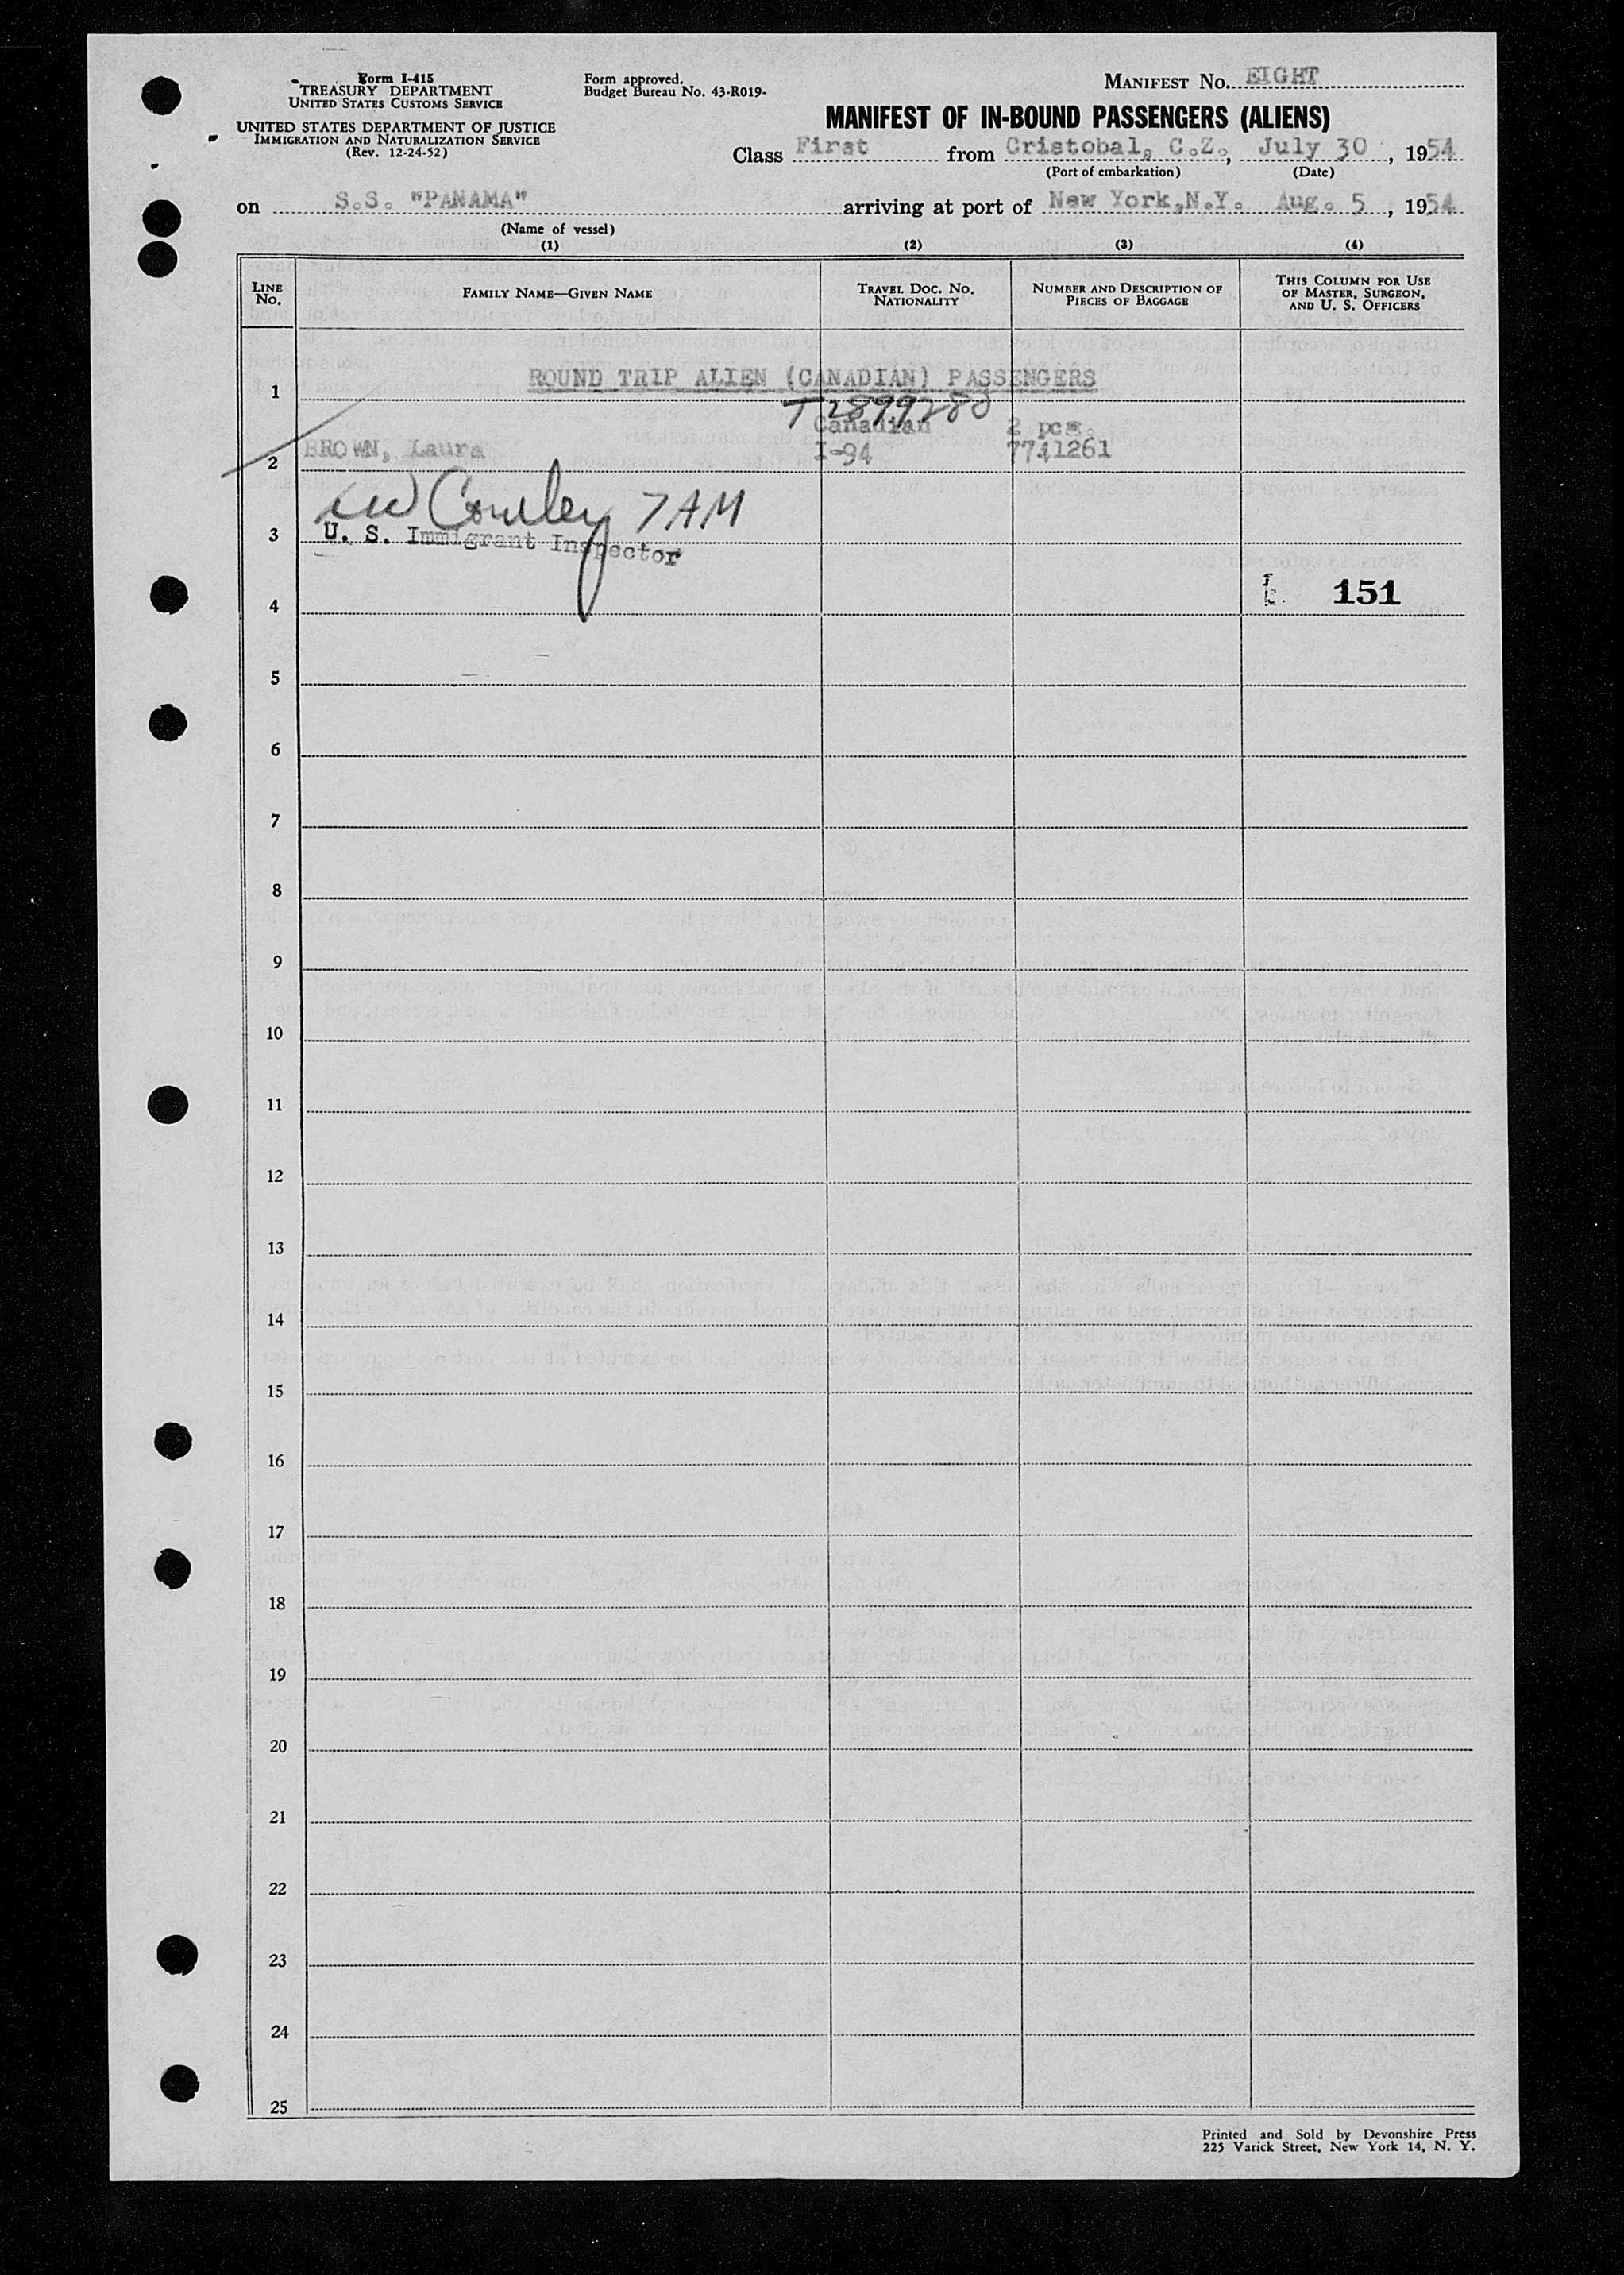 Form I-415
TREASURY DEPARTMENT
UNITED STATES CUSTOMS SERVICE
UNITED STATES DEPARTMENT OF JUSTICE
IMMIGRATION AND NATURALIZATION SERVICE
(Rev. 12-24-52)
Form approved.
Budget Bureau No. 43-R019-
MANIFEST No. EIGHT
MANIFEST OF IN-BOUND PASSENGERS (ALIENS)
Class First from Cristobal, C.Z., July 30, 1954
(Port of embarkation) (Date)
on S.S. "PANAMA" arriving at port of New York,N.Y. Aug. 5, 1954
(Name of vessel)
(1) (2) (3) (4)
LINE No. FAMILY NAME—GIVEN NAME TRAVEL DOC. NO. NATIONALITY NUMBER AND DESCRIPTION OF PIECES OF BAGGAGE THIS COLUMN FOR USE OF MASTER, SURGEON, AND U. S. OFFICERS
1 ROUND TRIP ALIEN (CANADIAN) PASSENGERS
T 2899280
Canadian 2 pcs.
2 BROWN, Laura I-94 7741261
Conley 7 AM
3 U. S. Immigrant Inspector
4 151
5
6
7
8
9
10
11
12
13
14
15
16
17
18
19
20
21
22
23
24
25
Printed and Sold by Devonshire Press
225 Varick Street, New York 14, N. Y.